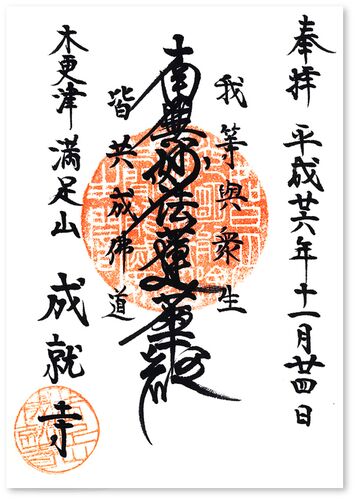 奉拝 平成廿六年十一月廿四日
我等與衆生
南無妙法蓮華経
皆共成佛道
木更津 満足山 成就寺